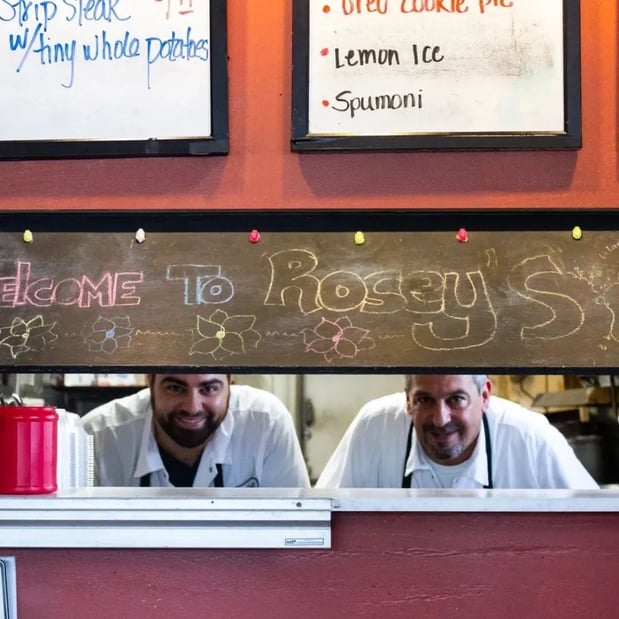 Strip Steak
w/tiny whole potatoes
Oreo cookie Pie
• Lemon Ice
• Spumoni
elcome To Rosey's